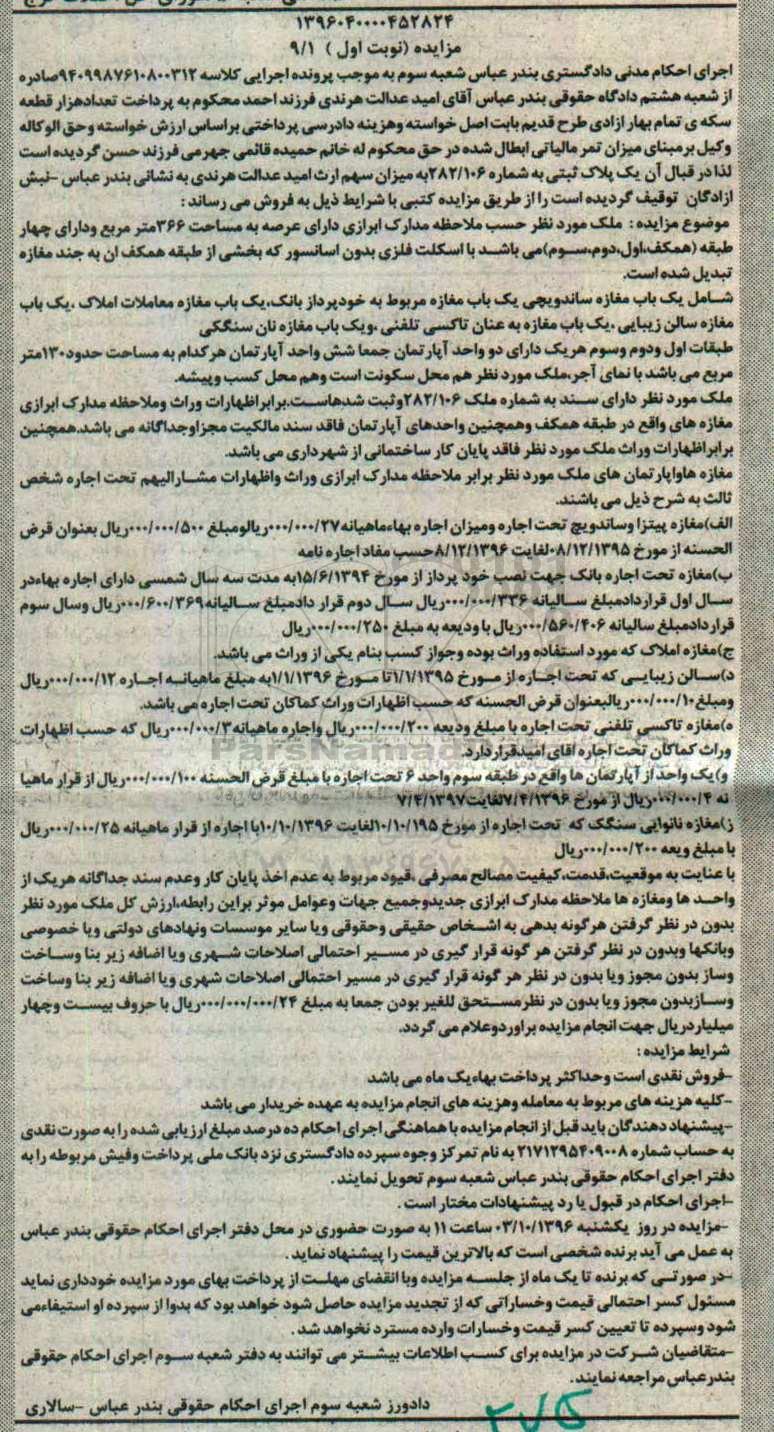 ۱۳۹۶۰۴۰۰۰۰۴۵۲۸۲۴
مزایده (نوبت اول ) ۹/۱
اجرای احکام مدنی دادگستری بندر عباس شعبه سوم به موجب پرونده اجرایی کلاسه ۹۴۰۹۹۸۷۶۱۰۸۰۰۳۱۲صادره
از شعبه هشتم دادگاه حقوقی بندر عباس آقای امید عدالت هرندی فرزند احمد محکوم به پرداخت تعدادهزار قطعه
سکه ی تمام بهار ازادی طرح قدیم بابت اصل خواسته وهزینه دادرسی پرداختی براساس ارزش خواسته وحق الوکاله
وکیل برمبنای میزان تمر مالیاتی ابطال شده در حق محکوم له خانم حمیده قائمی جهرمی فرزند حسن گردیده است
لذا در قبال آن یک پلاک ثبتی به شماره ۲۸۲/۱۰۶به میزان سهم ارث امید عدالت هرندی به نشانی بندر عباس -نبش
ازادگان توقیف گردیده است را از طریق مزایده کتبی با شرایط ذیل به فروش می رساند :
موضوع مزایده : ملک مورد نظر حسب ملاحظه مدارک ابرازی دارای عرصه به مساحت ۳۶۶متر مربع ودارای چهار
طبقه (همکف،اول،دوم،سوم)می باشد با اسکلت فلزی بدون اسانسور که بخشی از طبقه همکف ان به جند مغازه
تبدیل شده است.
شامل یک باب مغازه ساندویچی یک باب مغازه مربوط به خودپرداز بانک،یک باب مغازه معاملات املاک ،یک باب
مغازه سالن زیبایی ،یک باب مغازه به عنان تاکسی تلفنی ،ویک باب مغازه نان سنگکی
طبقات اول ودوم وسوم هریک دارای دو واحد آپارتمان جمعا شش واحد آپارتمان هرکدام به مساحت حدود۱۳۰متر
مربع می باشد با نمای آجر،ملک مورد نظر هم محل سکونت است وهم محل کسب وپیشه.
ملک مورد نظر دارای سند به شماره ملک ۲۸۲/۱۰۶وثبت شدهاست.برابراظهارات وراث وملاحظه مدارک ابرازی
مغازه های واقع در طبقه همکف وهمچنین واحدهای آپارتمان فاقد سند مالکیت مجزاوجداگانه می باشد.همچنین
برابراظهارات وراث ملک مورد نظر فاقد پایان کار ساختمانی از شهرداری می باشد.
مغازه هاواپارتمان های ملک مورد نظر برابر ملاحظه مدارک ابرازی وراث واظهارات مشارالیهم تحت اجاره شخص
ثالث به شرح ذیل می باشند.
الف)مغازه پیتزا وساندویچ تحت اجاره ومیزان اجاره بهاءماهیانه۰۰۰/۰۰۰/۲۷ریالومبلغ ۰۰۰/۰۰۰/۵۰۰ریال بعنوان قرض
الحسنه از مورخ ۰۸/۱۲/۱۳۹۵لغایت ۸/۱۲/۱۳۹۶حسب مفاد اجاره نامه
ب)مغازه تحت اجاره بانک جهت نصب خود پرداز از مورخ ۱۵/۶/۱۳۹۴به مدت سه سال شمسی دارای اجاره بهاءدر
سال اول قراردادمبلغ سالیانه ۰۰۰/۰۰۰/۳۳۶ریال سال دوم قرار دادمبلغ سالیانه۰۰۰/۶۰۰/۳۶۹ریال وسال سوم
قراردادمبلغ سالیانه ۰۰۰/۵۶۰/۴۰۶ریال با ودیعه به مبلغ ۰۰۰/۰۰۰/۲۵۰ریال
ج)مغازه املاک که مورد استفاده وراث بوده وجواز کسب بنام یکی از وراث می باشد.
د)سالن زیبایی که تحت اجاره از مورخ ۱/۱/۱۳۹۵تا مورخ ۱/۱/۱۳۹۶به مبلغ ماهیانه اجاره ۰۰۰/۰۰۰/۱۲ریال
ومبلغ۰۰۰/۰۰۰/۱۰ریالبعنوان قرض الحسنه که حسب اظهارات وراث کماکان تحت اجاره می باشد.
ه)مغازه تاکسی تلفنی تحت اجاره با مبلغ ودیعه ۰۰۰/۰۰۰/۲۰۰ریال واجاره ماهیانه۰۰۰/۰۰۰/۳ریال که حسب اظهارات
وراث کماکان تحت اجاره اقای امیدقراردارد.
و)یک واحد از آپارتمان ها واقع در طبقه سوم واحد ۶ تحت اجاره با مبلغ قرض الحسنه ۰۰۰/۰۰۰/۱۰۰ریال از قرار ماهیا
نه ۰۰۰/۰۰۰/۴ریال از مورخ ۷/۴/۱۳۹۶لغایت۷/۴/۱۳۹۷
ز)مغازه نانوایی سنگک که تحت اجاره از مورخ ۱۰/۱۰/۱۹۵لغایت ۱۰/۱۰/۱۳۹۶با اجاره از قرار ماهیانه ۰۰۰/۰۰۰/۲۵ریال
با مبلغ ویعه ۰۰۰/۰۰۰/۲۰۰ریال
با عنایت به موقعیت،قدمت،کیفیت مصالح مصرفی ،قیود مربوط به عدم اخذ پایان کار وعدم سند جداگانه هریک از
واحد ها ومغازه ها ملاحظه مدارک ابرازی جدیدوجمیع جهات وعوامل موثر براین رابطه،ارزش کل ملک مورد نظر
بدون در نظر گرفتن هرگونه بدهی به اشخاص حقیقی وحقوقی ویا سایر موسسات ونهادهای دولتی ویا خصوصی
وبانکها وبدون در نظر گرفتن هر گونه قرار گیری در مسیر احتمالی اصلاحات شهری ویا اضافه زیر بنا وساخت
وساز بدون مجوز ویا بدون در نظر هر گونه قرار گیری در مسیر احتمالی اصلاحات شهری ویا اضافه زیر بنا وساخت
وسازبدون مجوز ویا بدون در نظرمستحق للغیر بودن جمعا به مبلغ ۰۰۰/۰۰۰/۰۰۰/۲۴ریال با حروف بیست وچهار
میلیاردریال جهت انجام مزایده براوردوعلام می گردد.
شرایط مزایده :
-فروش نقدی است وحداکثر پرداخت بهاءیک ماه می باشد
-کلیه هزینه های مربوط به معامله وهزینه های انجام مزایده به عهده خریدار می باشد
-پیشنهاد دهندگان باید قبل از انجام مزایده با هماهنگی اجرای احکام ده درصد مبلغ ارزیابی شده را به صورت نقدی
به حساب شماره ۲۱۷۱۲۹۵۴۰۹۰۰۸ به نام تمرکز وجوه سپرده دادگستری نزد بانک ملی پرداخت وفیش مربوطه را به
دفتر اجرای احکام حقوقی بندر عباس شعبه سوم تحویل نمایند .
-اجرای احکام در قبول یا رد پیشنهادات مختار است .
-مزایده در روز یکشنبه ۰۳/۱۰/۱۳۹۶ ساعت ۱۱ به صورت حضوری در محل دفتر اجرای احکام حقوقی بندر عباس
به عمل می آید برنده شخصی است که بالاترین قیمت را پیشنهاد نماید .
-در صورتی که برنده تا یک ماه از جلسه مزایده وبا انقضای مهلت از پرداخت بهای مورد مزایده خودداری نماید
مسئول کسر احتمالی قیمت وخساراتی که از تجدید مزایده حاصل شود خواهد بود که بدوا از سپرده او استیفاءمی
شود وسپرده تا تعیین کسر قیمت وخسارات وارده مسترد نخواهد شد .
-متقاضیان شرکت در مزایده برای کسب اطلاعات بیشتر می توانند به دفتر شعبه سوم اجرای احکام حقوقی
بندرعباس مراجعه نمایند .
دادورز شعبه سوم اجرای احکام حقوقی بندر عباس -سالاری